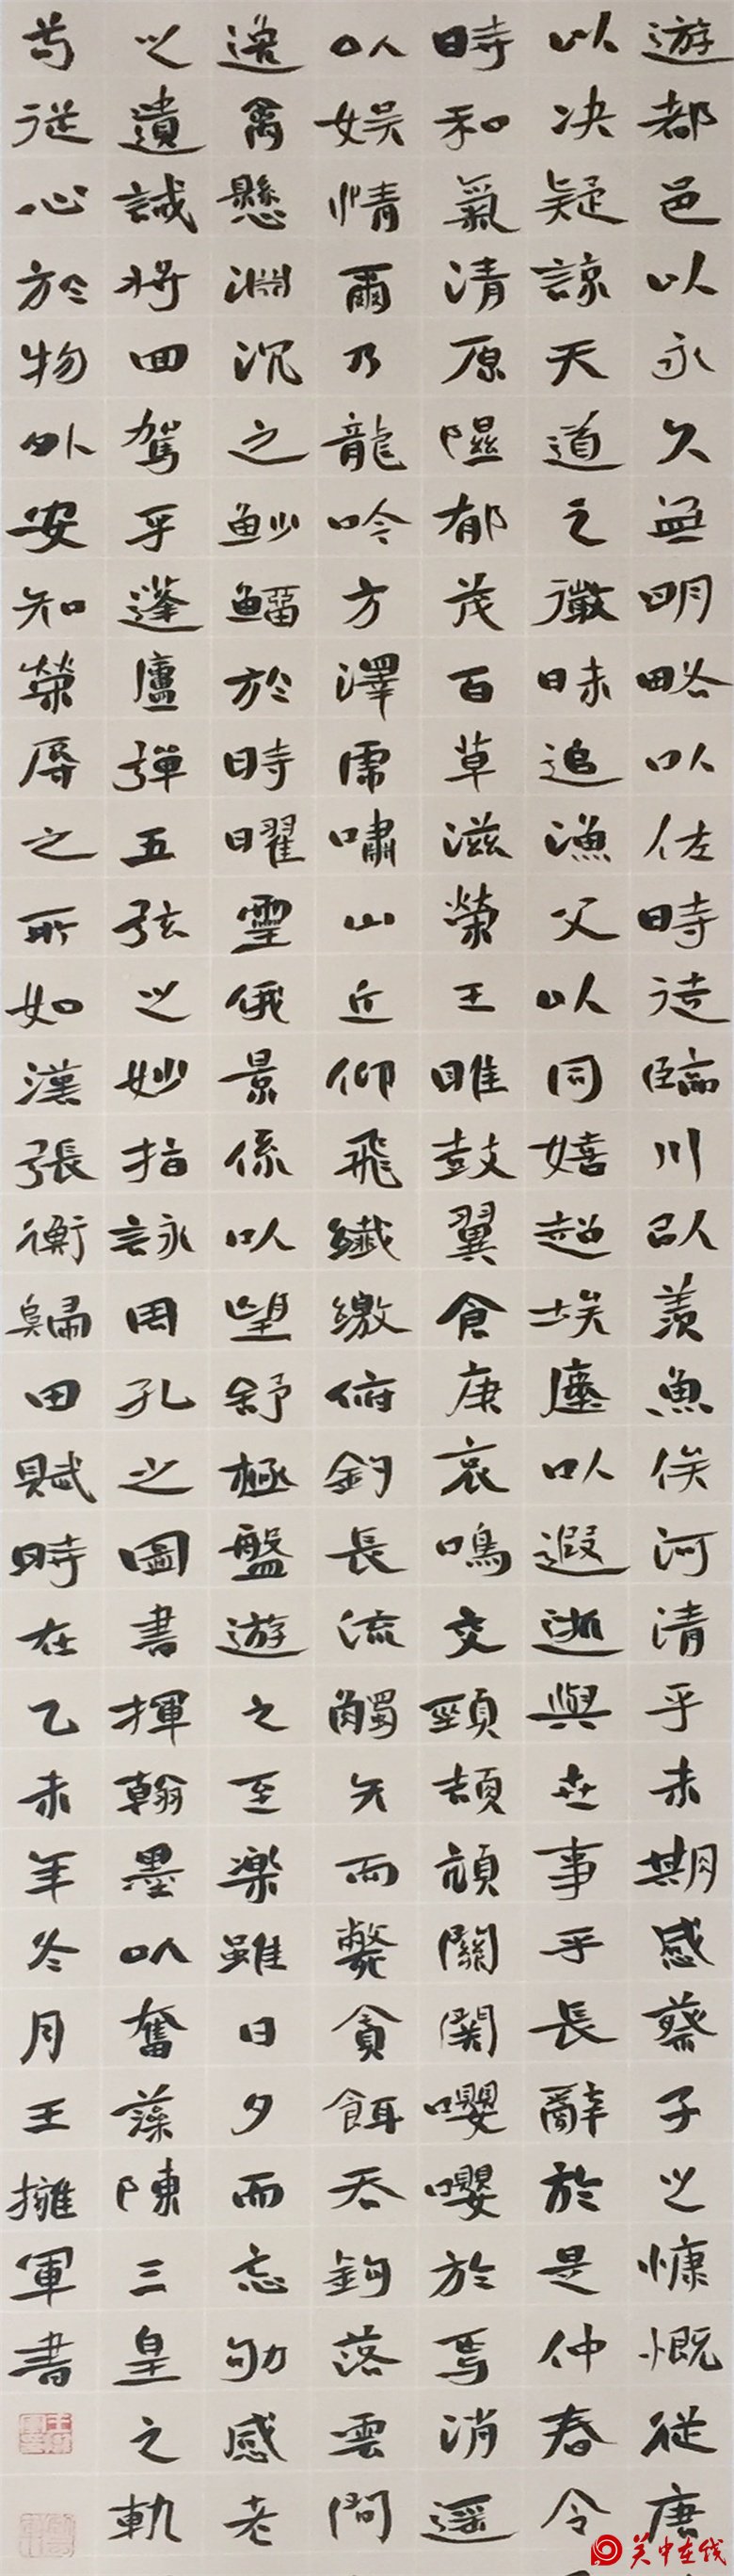 遊都邑以永久無明略以佐時徒臨川以羨魚俟河清乎未期感蔡子之慷慨從唐
以决疑諒天道之微昧追漁父以同嬉超埃塵以遐逝與世事乎長辭於是仲春令
時和氣清原隰郁茂百草滋榮王雎鼓翼倉庚哀鳴交頸頡頏關關嚶嚶於焉消遥
以娛情爾乃龍吟方澤虎嘯山丘仰飛纖繳俯釣長流觸矢而斃貪餌吞鉤落雲間
逸禽懸淵沉之魦鰡於時曜靈俄景係以望舒極盤遊之至樂雖日夕而忘劬感老
之遺誡將回駕乎蓬廬彈五弦之妙指詠周孔之圖書揮翰墨以奮藻陳三皇之軌
苟從心於物外安知榮辱之所如漢張衡歸田賦時在乙未年冬月王擁軍書
关中在线